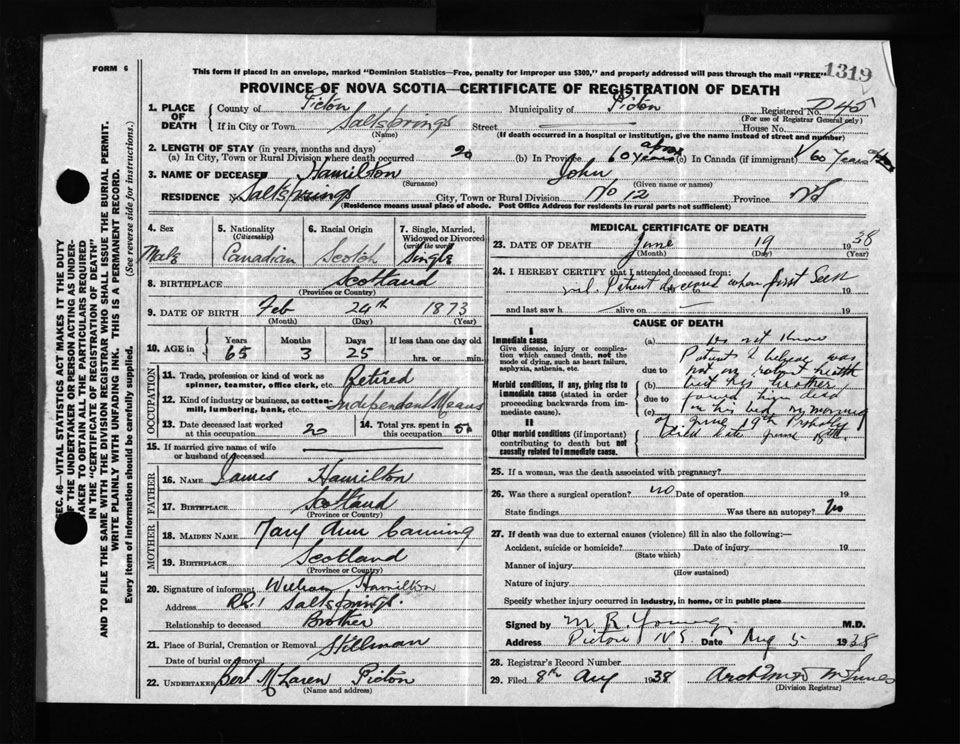 1319
FORM 6
This form if placed in an envelope, marked "Dominion Statistics—Free, penalty for improper use $300," and properly addressed will pass through the mail "FREE"
PROVINCE OF NOVA SCOTIA—CERTIFICATE OF REGISTRATION OF DEATH
1. PLACE OF DEATH County of Pictou Municipality of Pictou Registered No. D 45
(For use of Registrar General only)
If in City or Town Saltsprings Street — House No.
(Name) (If death occurred in a hospital or institution, give the name instead of street and number)
2. LENGTH OF STAY (in years, months and days)
(a) In City, Town or Rural Division where death occurred 20 (b) In Province 60 years (c) In Canada (if immigrant) 60 Years
3. NAME OF DECEASED Hamilton John
(Surname) (Given name or names)
RESIDENCE No. Saltsprings City, Town or Rural Division No 12 Province NS
(Residence means usual place of abode. Post Office Address for residents in rural parts not sufficient)
4. Sex Male
5. Nationality (Citizenship) Canadian
6. Racial Origin Scotch
7. Single, Married, Widowed or Divorced (write the word) Single
8. BIRTHPLACE Scotland
(Province or Country)
9. DATE OF BIRTH Feb 29th 1873
(Month) (Day) (Year)
10. AGE in Years Months Days If less than one day old
65 3 25 hrs. or min.
OCCUPATION
11. Trade, profession or kind of work as spinner, teamster, office clerk, etc. Retired
12. Kind of industry or business, as cotton-mill, lumbering, bank, etc. Independent Means
13. Date deceased last worked at this occupation 20
14. Total yrs. spent in this occupation 50
15. If married give name of wife or husband of deceased —
FATHER
16. NAME James Hamilton
17. BIRTHPLACE Scotland
(Province or Country)
MOTHER
18. MAIDEN NAME Mary Ann Canning
19. BIRTHPLACE Scotland
(Province or Country)
20. Signature of informant William Hamilton
Address RR. 1 Saltsprings.
Relationship to deceased Brother
21. Place of Burial, Cremation or Removal Stillman
Date of burial or removal
22. UNDERTAKER Bert McLaren Pictou
(Name and address)
MEDICAL CERTIFICATE OF DEATH
23. DATE OF DEATH June 19 1938
(Month) (Day) (Year)
24. I HEREBY CERTIFY that I attended deceased from:
nil. Patient deceased when first seen 19
and last saw h — alive on — 19
CAUSE OF DEATH
I
Immediate cause
Give disease, injury or complication which caused death, not the mode of dying, such as heart failure, asphyxia, asthenia, etc.
Morbid conditions, if any, giving rise to immediate cause (stated in order proceeding backwards from immediate cause).
II
Other morbid conditions (if important) contributing to death but not causally related to immediate cause.
(a) Do not know
Patient I believe was
due to not in robust health
(b) but his brother
due to found him dead
(c) in his bed on morning
of June 19th Probably
died late June 18th.
25. If a woman, was the death associated with pregnancy?
26. Was there a surgical operation? no Date of operation 19
State findings Was there an autopsy? No
27. If death was due to external causes (violence) fill in also the following:—
Accident, suicide or homicide? Date of injury 19
(State which)
Manner of injury
(How sustained)
Nature of injury
Specify whether injury occurred in industry, in home, or in public place
Signed by M. R. Young M.D.
Address Pictou N.S. Date Aug 5 1938
28. Registrar's Record Number
29. Filed 8th Aug 1938 McInnes
(Division Registrar)
SEC. 46—VITAL STATISTICS ACT MAKES IT THE DUTY
OF THE UNDERTAKER OR PERSON ACTING AS UNDERTAKER TO OBTAIN ALL THE PARTICULARS REQUIRED
IN THE "CERTIFICATE OF REGISTRATION OF DEATH"
AND TO FILE THE SAME WITH THE DIVISION REGISTRAR WHO SHALL ISSUE THE BURIAL PERMIT.
WRITE PLAINLY WITH UNFADING INK. THIS IS A PERMANENT RECORD.
Every item of information should be carefully supplied. (See reverse side for instructions.)